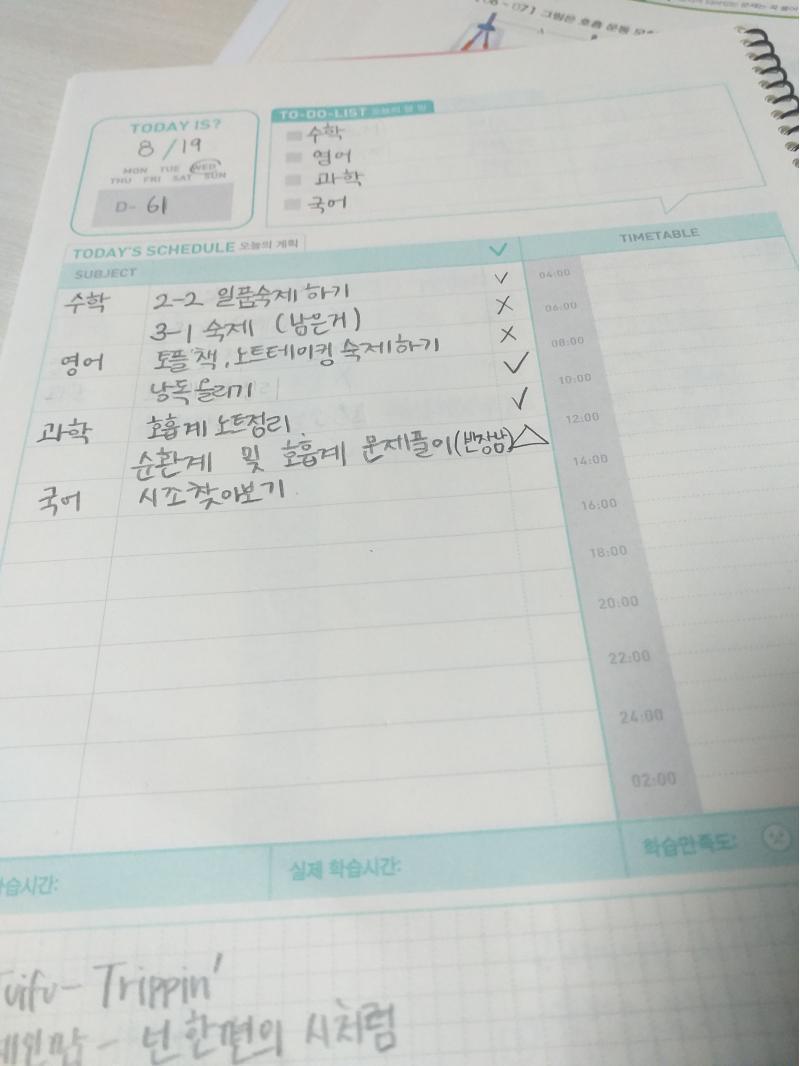 07] 그림은 호흡 운동
TODAY IS?
8/19
MON TUE WED
THU FRI SAT SUN
D- 61
TO-DO-LIST 오늘의 할 일
수학
영어
과학
국어
TODAY'S SCHEDULE 오늘의 계획
SUBJECT
TIMETABLE
수학 2-2 일품숙제 하기 ✓
3-1 숙제 (남은거) X
영어 토플책, 노트테이킹 숙제하기 X
낭독올리기 ✓
과학 호흡계 노트정리. ✓
순환계 및 호흡계 문제풀이(반장남) △
국어 시조찾아보기
04:00
06:00
08:00
10:00
12:00
14:00
16:00
18:00
20:00
22:00
24:00
02:00
습시간:
실제 학습시간:
학습만족도:
Trippin'
넌 한편의 시처럼